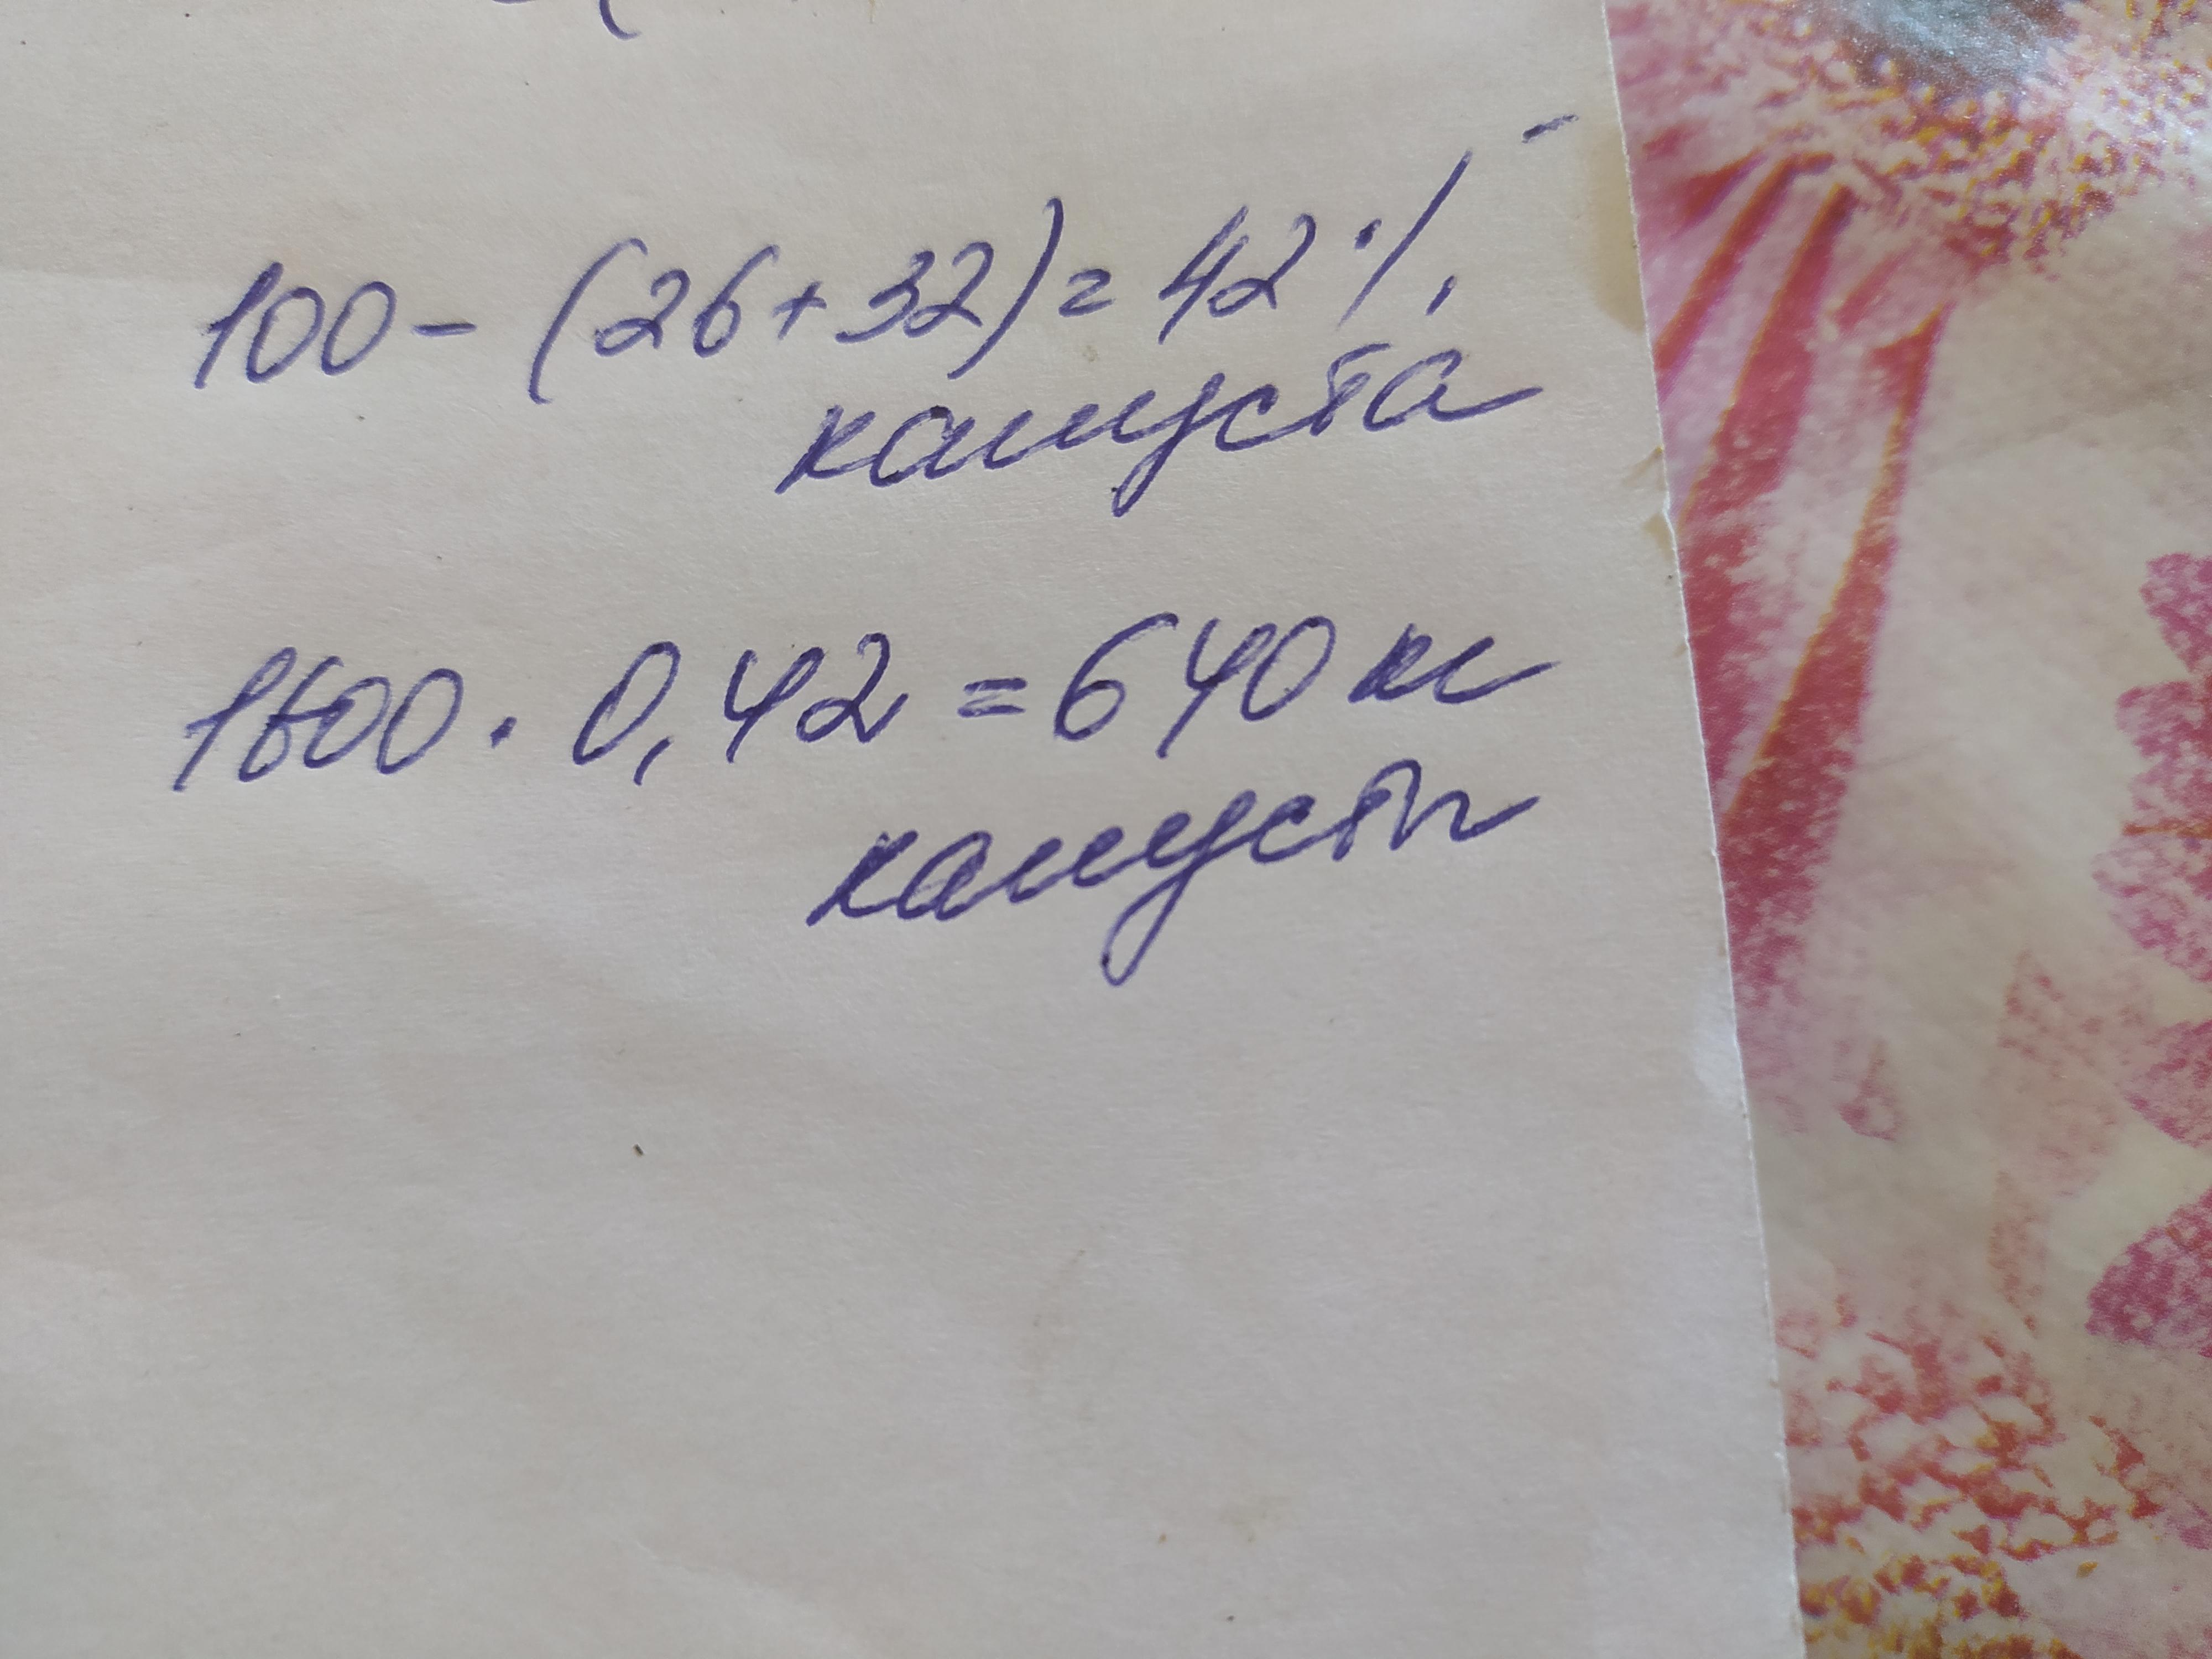 100 - (26 + 32) = 42 %
капуста
1600 · 0,42 = 640 кг
капусты